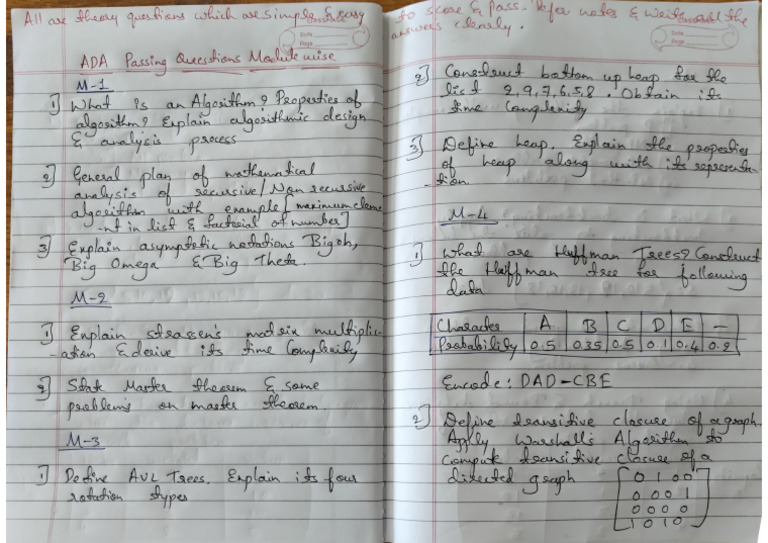 All are theory questions which are simple & easy
ADA Passing Questions Module wise
M-1
1] What is an Algorithm? Properties of
algorithm? Explain algorithmic design
& analysis process
2] General plan of mathematical
analysis of recursive/Non recursive
algorithm with example [maximum eleme
-nt in list & factorial of number]
3] Explain asymptotic notations Big oh,
Big Omega & Big Theta.
M-2
1] Explain strassen's matrix multiplic
-ation & derive its time Complexity
2] State Master theorem & some
problems on master theorem.
M-3
1] Define AVL Trees. Explain its four
rotation types
to score & pass. Refer notes & write all the
answers clearly.
Date
Page
2] Construct bottom up heap for the
list 2,9,7,6,5,8. Obtain its
time Complexity
3] Define heap. Explain the properties
of heap along with its representa
-tion.
M-4
1] What are Huffman Trees? Construct
the Huffman tree for following
data
Character A B C D E –
Probability 0.5 0.35 0.5 0.1 0.4 0.2
Encode: DAD-CBE
2] Define transitive closure of a graph.
Apply Warshall's Algorithm to
compute transitive closure of a
directed graph
0 1 0 0
0 0 0 1
0 0 0 0
1 0 1 0